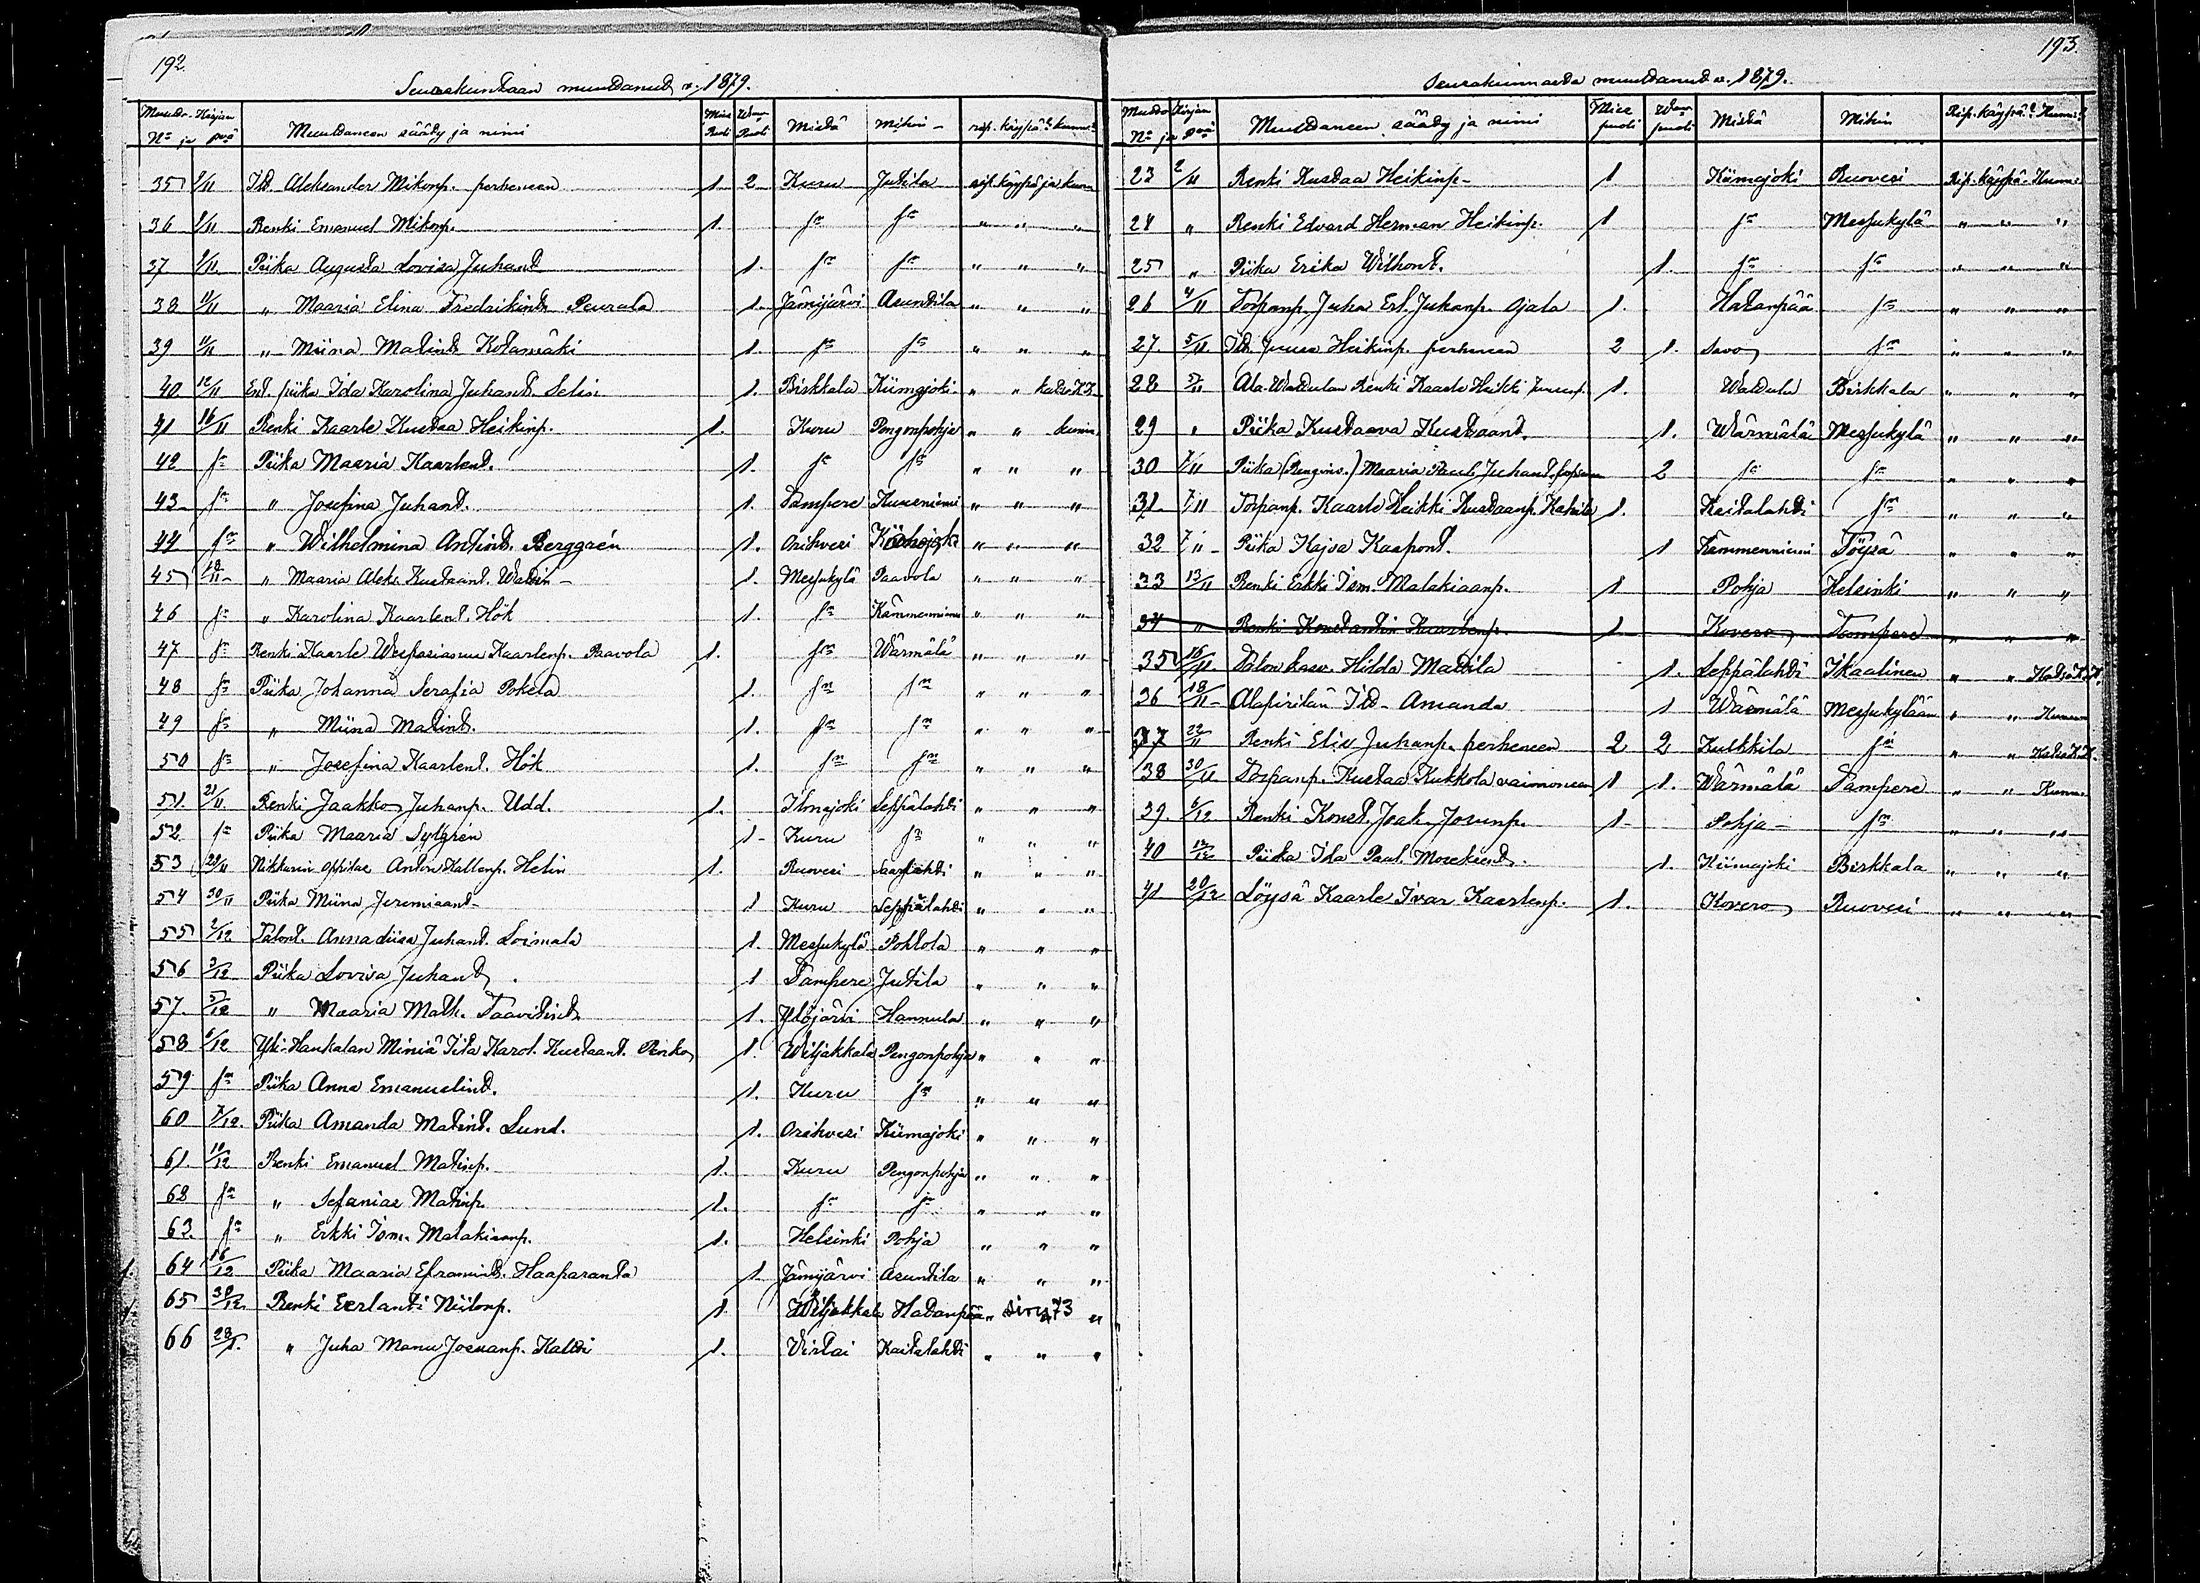 192.
Seurakuntaan muuttanut v. 1879.
Muutto- Kirjan
No ja pvä Muuttaneen sääty ja nimi Mies Puoli Waim Puoli Mistä Mihin rip. käypä? kunni?
35 8/11 Itl. Aleksander Mikonp. perheneen 1. 2 Kuru Jutila rip. käypä ja kunn
36 8/11 Renki Emanuel Mikonp. 1. sn sn " " "
37 8/11 Piika Augusta Lovisa Juhant 1. sn sn " " "
38 11/11 " Maaria Elina Fredrikint Peurala 1. Jämijärvi Asuntila " " "
39 11/11 " Miina Matint. Kotamäki 1. sn sn " " "
40 12/11 Ent. piika Ida Karolina Juhant. Selin 1. Birkkala Kiimajoki " " katso K.K.
41 16/11 Renki Kaarle Kustaa Heikinp. 1. Kuru Pengonpohja " " kunin
42 sn Piika Maaria Kaarlent. 1. sn sn " " "
43 sn " Josefina Juhant. 1. Tampere Kuuseniemi " " "
44 sn " Wilhelmina Antint. Berggrén 1. Orihvesi " " "
45 18/11 " Maaria Aleks. Kustaant. Wallin 1. Messukylä Paavola " " "
46 sn " Karolina Kaarlent. Hök 1. sn Kämmenniemi " " "
47 sn Renki Kaarle Wespasianus Kaarlenp. Paavola 1. sn Wärmälä " " "
48 sn Piika Johanna Serafia Pokela 1. sn sn " " "
49 sn " Miina Matint. 1. sn sn " " "
50 sn " Josefina Kaarlent. Hök 1. sn sn " " "
51. 21/11. Renki Jaakko Juhanp. Udd. 1. Ilmajoki Seppälahti " " "
52. sn Piika Maaria Sylgrén 1. Kuru sn " " "
53 28/11 Nikkarin oppilas Anton Kallenp. Helin 1. Ruovesi Saarlahti " " "
54 30/11 Piika Miina Jeremiaant. 1 Kuru Seppälahti " " "
55 2/12 Talont. Anna Liisa Juhant. Loimala 1. Messukylä Pohtola " " "
56 3/12 Piika Lovisa Juhant. 1 Tampere Jutila " " "
57. 5/12 " Maaria Math. Taavitint. 1. Ylöjärvi Hannula " " "
58 6/12 Yli-Haukalan Miniä Iita Karol. Kustaant. Penko 1. Wiljakkala Pengonpohja " " "
59 sn Piika Anna Emanuelint. 1. Kuru sn " " "
60 7/12. Piika Amanda Matint. Lund. 1. Orihvesi Kiimajoki " " "
61. 10/12 Renki Emanuel Matinp. 1. Kuru Pengonpohja " " "
62 sn " Sefanias Matinp. 1. sn sn " " "
63. sn " Erkki Ism. Malakiaanp. 1. Helsinki Pohja " " "
64 16/12 Piika Maaria Eframint. Haaparanta 1 Jämijärvi Asuntila " " "
65 30/12. Renki Eerlanti Niilonp. 1. Wiljakkala Hatanpää " sivu 73 "
66 28/1. " Juha Manu Josuanp. Kaltti 1. Virtai Kaitalahti " " "
193.
Seurakunnasta muuttanut v. 1879.
Muutto Kirjan
No ja pvä Muuttaneen sääty ja nimi Mies puoli Waim puoli Mistä Mihin Rip. käypä? Kunni?
23 2/11 Renki Kustaa Heikinp. 1 Kiimajoki Ruovesi Rip. käypä. Kunni
24 " Renki Edvard Herman Heikinp. 1 sn Messukylä " " "
25 " Piika Erika Wilhont. 1. sn sn " " "
26 4/11 Torpanp. Juha Erl. Juhanp. Ojala 1. Hatanpää sn " " "
27. 5/11. Itl. Juuso Heikinp. perheneen 2 1. Savo sn " " "
28 5/11 Ala-Wattulan Renki Kaarle Heikki Juusonp. 1. Wattula Birkkala " " "
29 " Piika Kustaava Kustaant. 1. Wärmälä Messukylä " " "
30 7/11 Piika (Renginv.) Maaria Paul. Juhant. 2 sn sn " " "
31 7/11 Torpanp. Kaarle Heikki Kustaanp. 1. Kaitalahti sn " " "
32 7/11 Piika Kajsa Kaapont. 1 Kämmenniemi Töysä " " "
33 13/11 Renki Erkki Ism. Malakiaanp. 1 Pohja Helsinki " " "
34 " Renki Konstantin Kaarlenp. 1 Kovero Tampere " " "
35 16/11 Talon kasv. Hilda Mattila 1. Seppälahti Ikaalinen " " Katso K.K.
36 18/11 Alapirilän Itl. Amanda 1 Wärmälä Messukylään " " Kunnia
37 22/11 Renki Elis Juhanp. perheneen 2 2 Kulkkila sn " " Katso K.K.
38 30/11 Torpanp. Kustaa Kukkola vaimoneen 1 1. Wärmälä Tampere " " Kunn.
39. 6/12 Renki Konst. Joak. Josunp. 1 Pohja sn " " "
40 12/12 Piika Ida Paul. Mosekient. 1. Kiimajoki Birkkala " " "
41 20/12 Löysä Kaarle Ivar Kaarlenp. 1. Kovero Ruovesi " " "